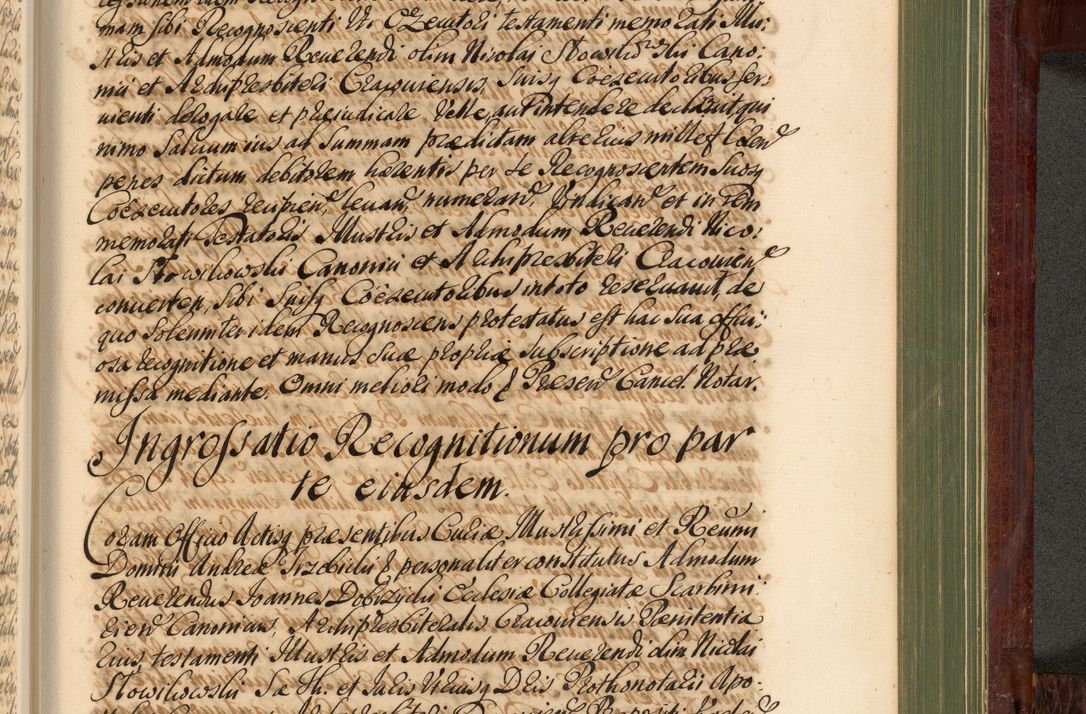 mam sibi Recognoscenti uti Coëxecutori testamenti memorati Illu:
stris et Admodum Reuerendi olim Nicolai Słowikowski Cano:
nici et Archipresbiteri Cracouiensis, suisq Coëxecutoribus ser:
uienti derogare et præiudicare velle, aut intendere declarat qui
nimo saluum ius ad summam prædictam alterius mille florenor
penes dictum debitorem hærentis per se Recognoscentem suosq
Coëxecutores recipien, leuan, numeran, vindican et in rem
memorati Testatoris Illustris et Admodum Reuerendi Nico:
lai Słowikowski Canonici et Archipresbiteri Cracouien
conuerten, sibi suisq Coëxecutoribus in toto reseruauit, de
quo solemniter idem Recognoscens protestatus est hac sua offici:
osa recognitione et manus suæ propriæ subscriptione ad præ
missa mediante. Omni meliori modo Præsen Cancel. Notar.
Ingrossatio Recognitionum pro par
te eiusdem.
Coram Officio Actisq præsentibus Curiæ Illustrissimi et Reuermi
Domini Andreæ Trzebicki personaliter constitutus Admodum
Reuerendus Joannes Dobrzycki Ecclesiæ Collegiatæ Scarbimi
rien Canonicus, Archipresbiteralis Cracouiensis Pænitentia
rius, testamenti Illustris et Admodum Reuerendi olim Nicolai
Słowikowski Sæ Th. et Juris Utriusq Dris Prothonotarii Apo-